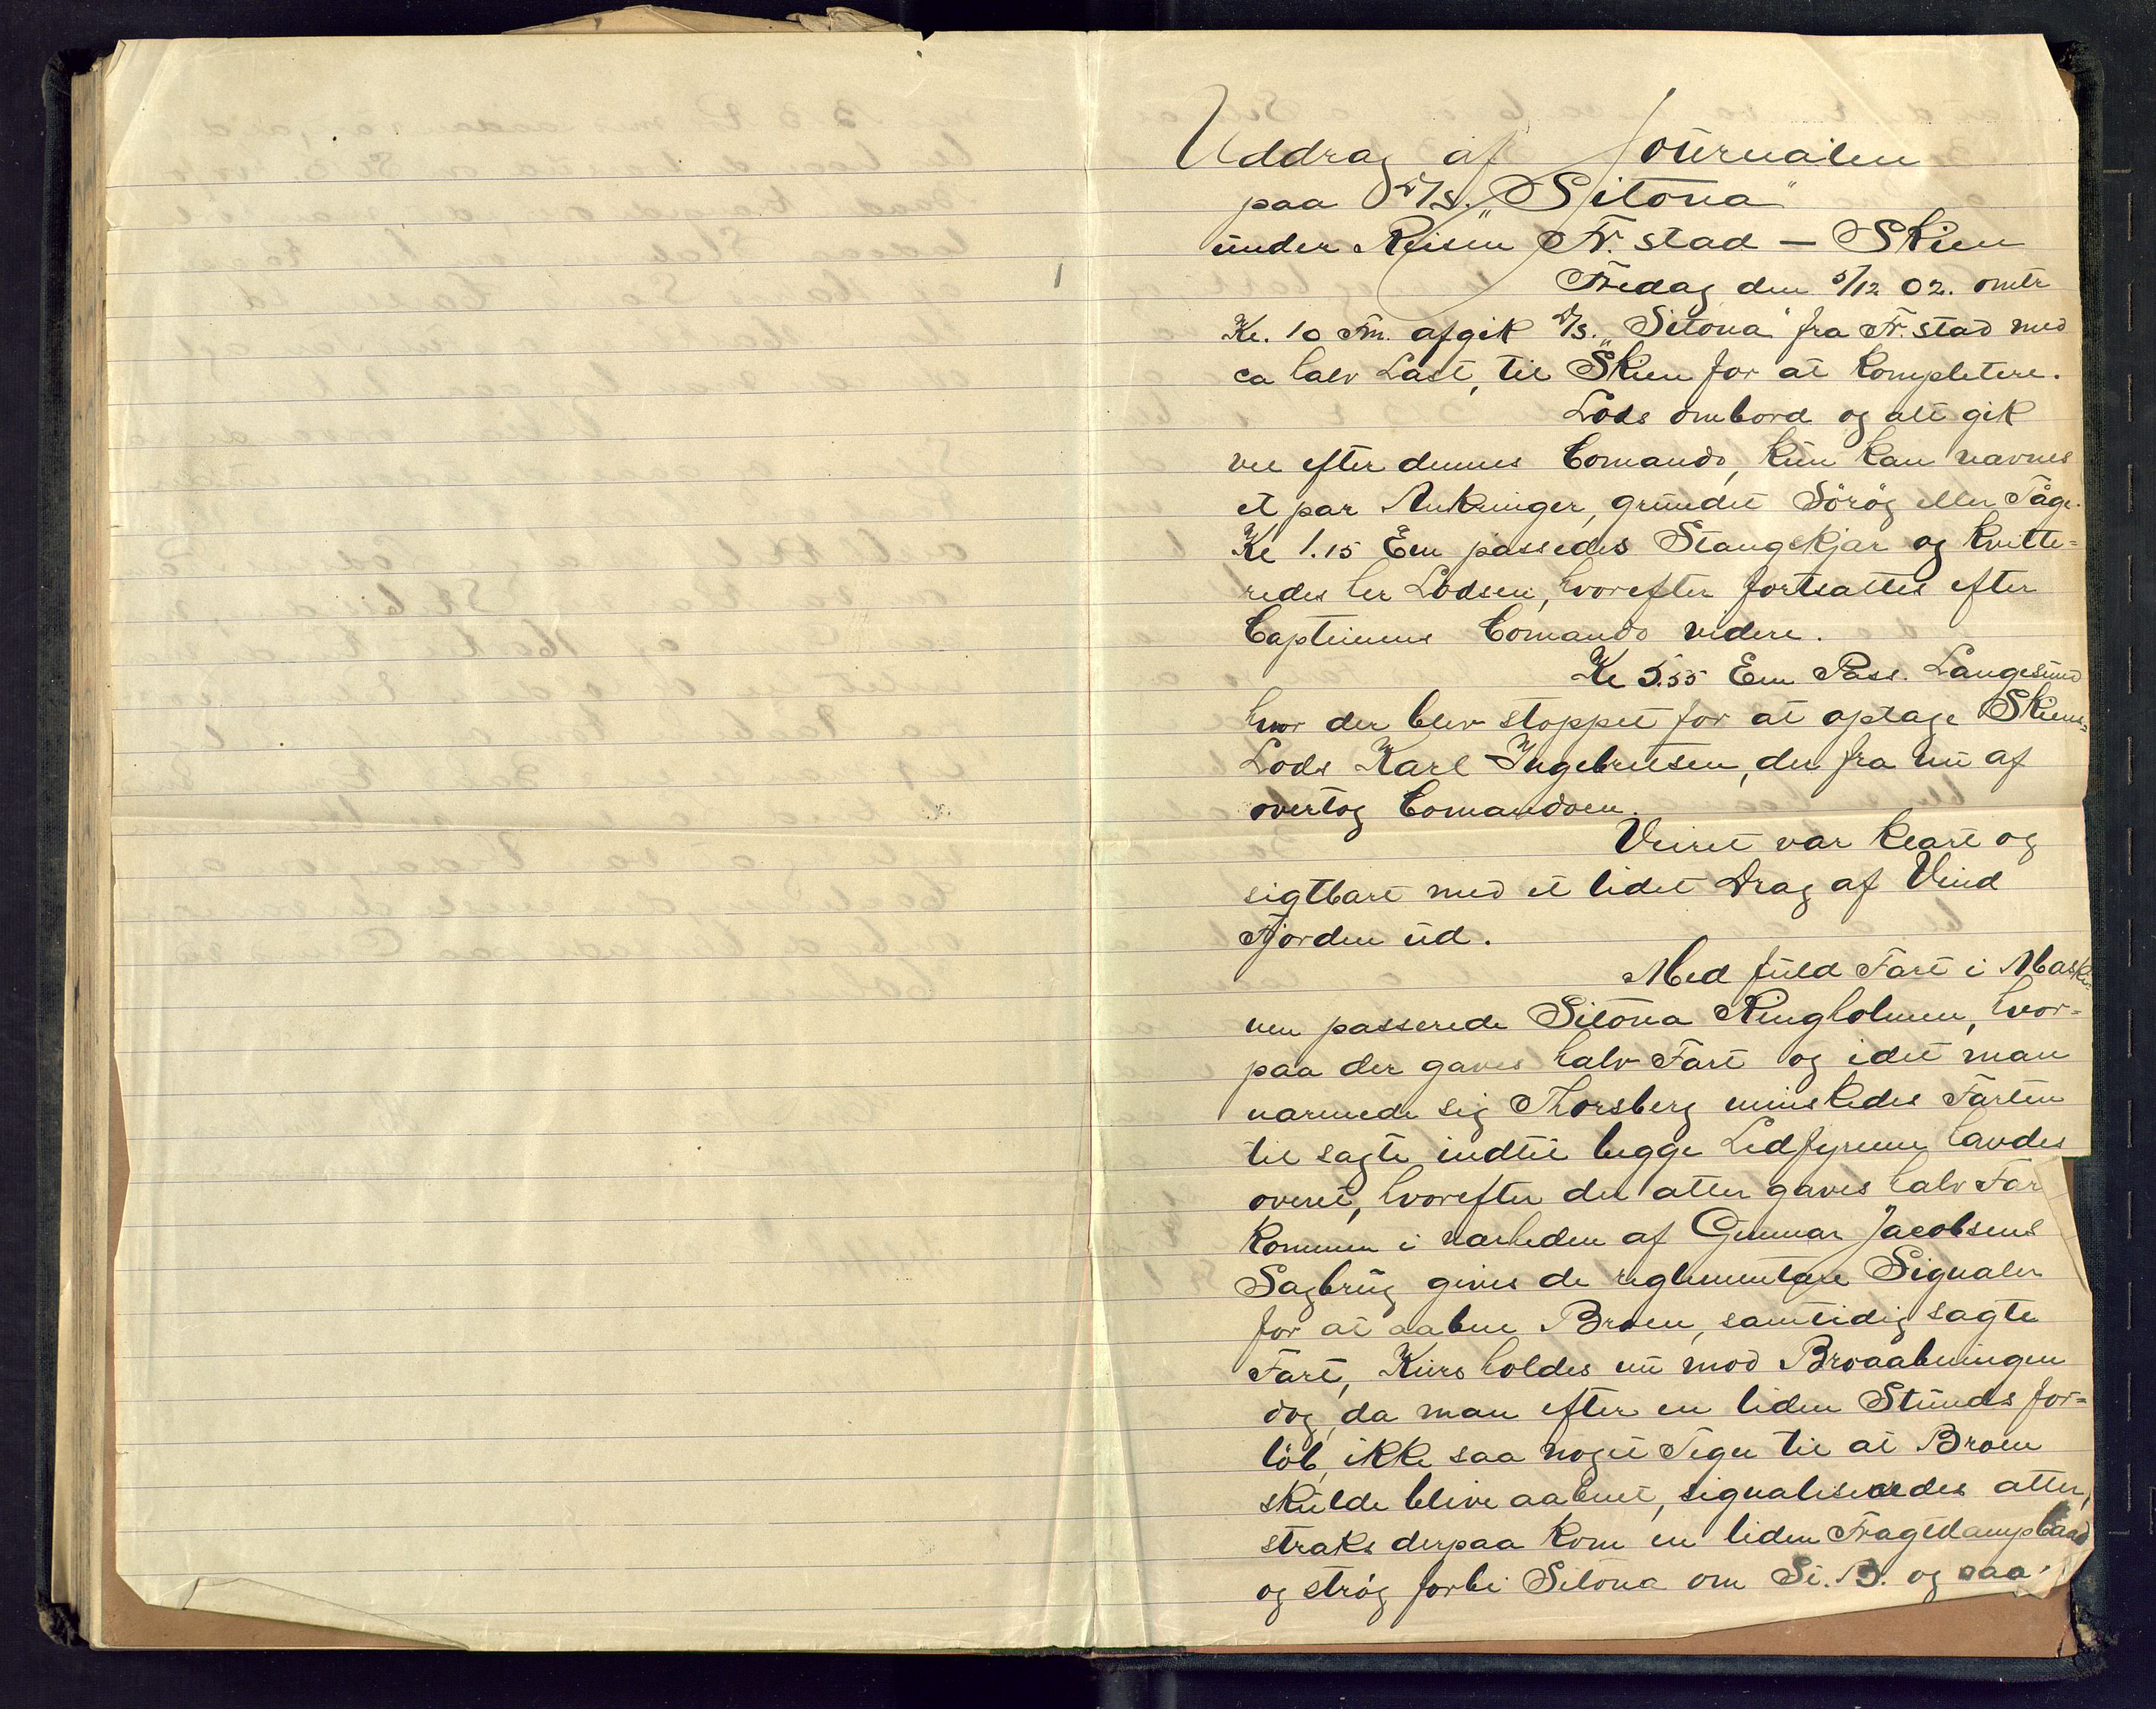 Uddrag af Journalen
paa D/S. „Sitona"
under Reisen Fr.stad — Skien
Fredag den 5/12 02. omtr
Kl. 10 Fm. afgik D/S. „Sitona" fra Fr.stad med
ca halv Last, til Skien for at komplettere.
Lods ombord og alt gik
vel efter dennes Comando, kun kan nævnes
et par Ankringer, grundet Sörög eller Tåge.
Kl 1.15 Em passedes Stangskjær og kvitte=
redes her Lodsen, hvorefter fortsattes efter
Capteinens Comando videre.
Kl 5.55 Em Pass. Langesund
hvor der blev stoppet for at optage Skiens=
Lods Karl Ingebretsen, der fra nu af
overtog Comandoen.
Veiret var klart og
sigtbart med et lidet Drag af Vind
Fjorden ud.
Med fuld Fart i Maski=
nen passerede Sitona Ringholmen, hvor=
paa der gaves halv Fart og idet man
nærmede sig Thorsberg minskedes Farten
til sagte indtil begge Ledfyrene havdes
overet, hvorefter der atter gaves halv Far
Kommen i nærheden af Gunnar Jacobsens
Sagbrug gives de reglementære Signaler
for at aabne Broen, samtidig sagte
Fart, Kurs holdes nu mod Broaabningen
dog, da man efter en liden Stunds for=
löb, ikke saa noget Tegn til at Broen
skulde blive aabnet, signaliseredes atter,
straks derpaa kom en liden Fragtdampbaad
og strög forbi Sitona om St. B. og saa